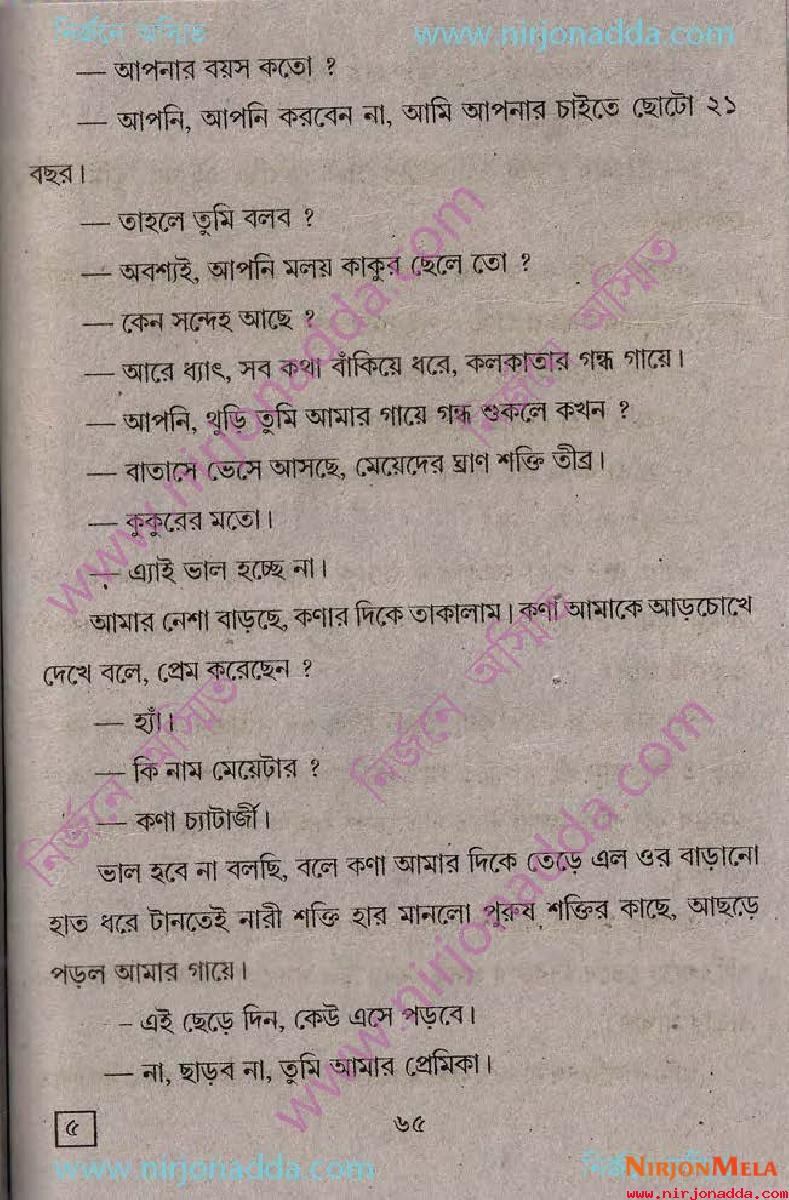 নির্জনে অস্মিত www.nirjonadda.com
— আপনার বয়স কতো ?
— আপনি, আপনি করবেন না, আমি আপনার চাইতে ছোটো ২১
বছর।
— তাহলে তুমি বলব ?
— অবশ্যই, আপনি মলয় কাকুর ছেলে তো ?
— কেন সন্দেহ আছে ?
— আরে ধ্যাৎ, সব কথা বাঁকিয়ে ধরে, কলকাতার গন্ধ গায়ে।
— আপনি, থুড়ি তুমি আমার গায়ে গন্ধ শুকলে কখন ?
— বাতাসে ভেসে আসছে, মেয়েদের ঘ্রাণ শক্তি তীব্র।
— কুকুরের মতো।
— এ্যাই ভাল হচ্ছে না।
আমার নেশা বাড়ছে, কণার দিকে তাকালাম। কণা আমাকে আড়চোখে
দেখে বলে, প্রেম করেছেন ?
— হ্যাঁ।
— কি নাম মেয়েটার ?
— কণা চ্যাটার্জী।
ভাল হবে না বলছি, বলে কণা আমার দিকে তেড়ে এল ওর বাড়ানো
হাত ধরে টানতেই নারী শক্তি হার মানলো পুরুষ শক্তির কাছে, আছড়ে
পড়ল আমার গায়ে।
– এই ছেড়ে দিন, কেউ এসে পড়বে।
— না, ছাড়ব না, তুমি আমার প্রেমিকা।
৫ ৬৫
www.nirjonadda.com NIRJONMELA
www.nirjonadda.com
www.nirjonadda.com
নির্জনে অস্মিত
নির্জনে অস্মিত
নির্জনে অস্মিত
www.nirjonadda.com